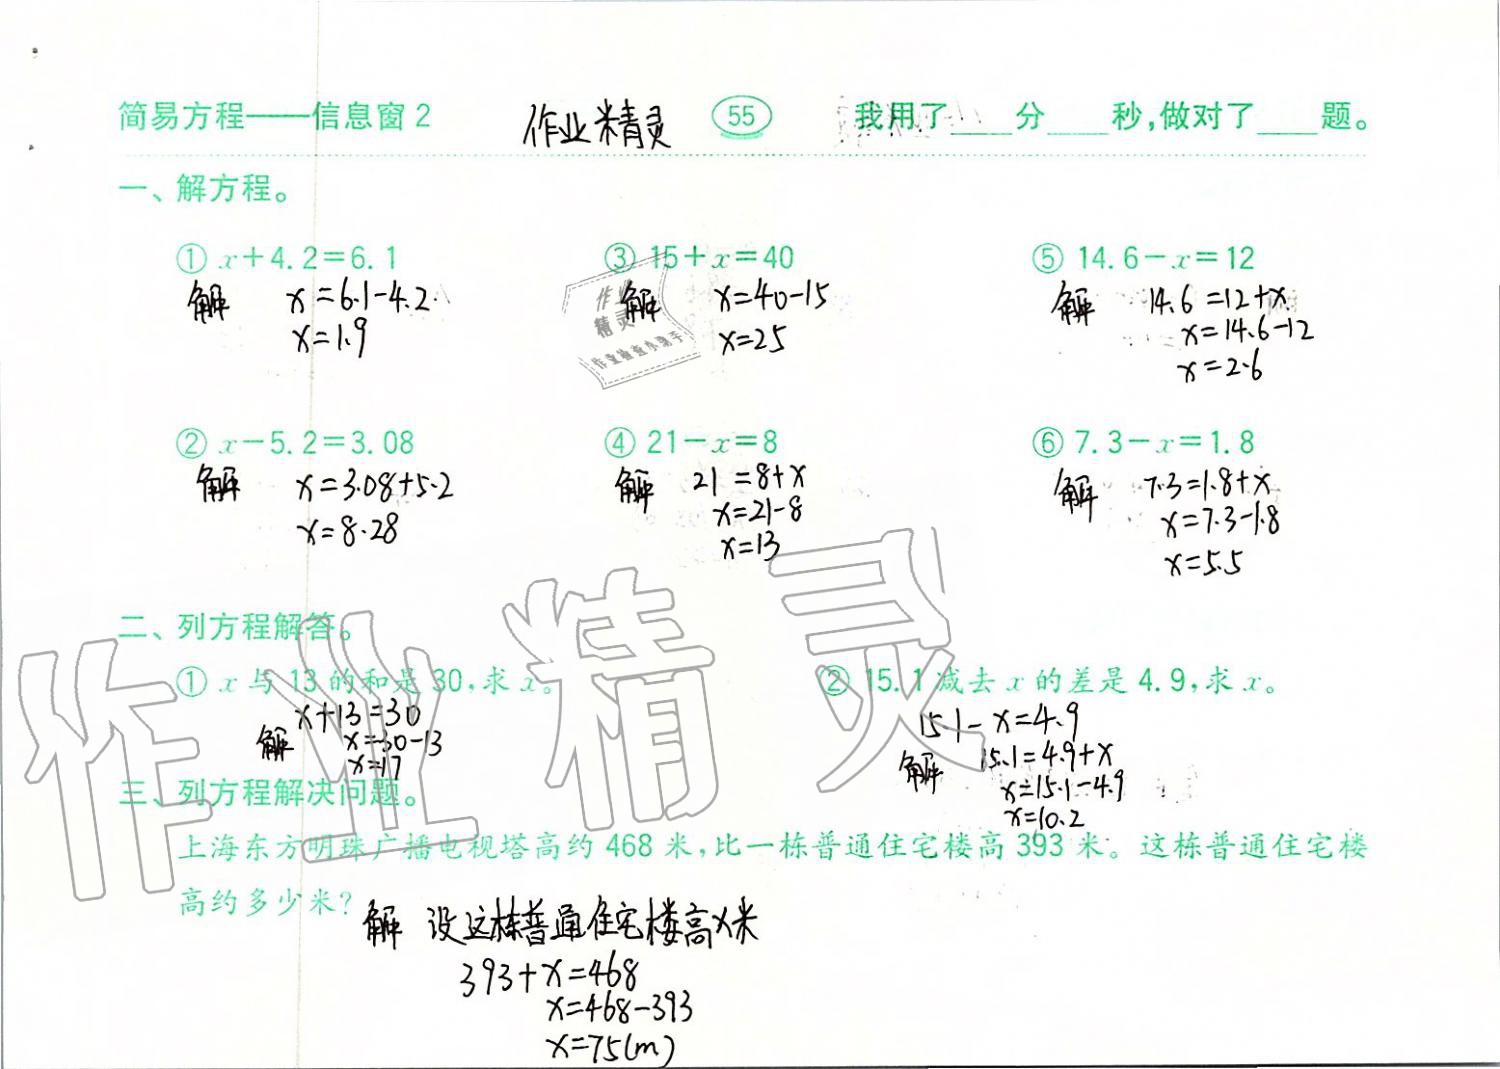 简易方程——信息窗2 作业精灵 55 我用了____分____秒,做对了____题。
一、解方程。
① x+4.2=6.1 ③ 15+x=40 ⑤ 14.6-x=12
解 x=6.1-4.2 解 x=40-15 解 14.6=12+x
x=1.9 x=25 x=14.6-12
x=2.6
作业
精灵
作业检查小助手
② x-5.2=3.08 ④ 21-x=8 ⑥ 7.3-x=1.8
解 x=3.08+5.2 解 21=8+x 解 7.3=1.8+x
x=8.28 x=21-8 x=7.3-1.8
x=13 x=5.5
二、列方程解答。
① x与13的和是30,求x。 ② 15.1减去x的差是4.9,求x。
x+13=30 15.1-x=4.9
解 x=30-13 解 15.1=4.9+x
x=17 x=15.1-4.9
x=10.2
三、列方程解决问题。
上海东方明珠广播电视塔高约468米,比一栋普通住宅楼高393米。这栋普通住宅楼
高约多少米?
解 设这栋普通住宅楼高x米
393+x=468
x=468-393
x=75(m)
作业精灵